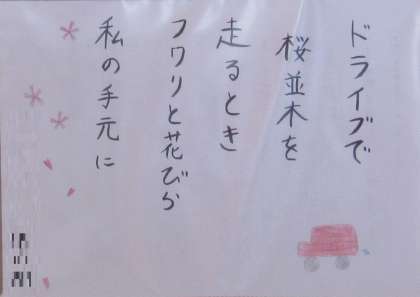 ドライブで
桜並木を
走るとき
フワリと花びら
私の手元に